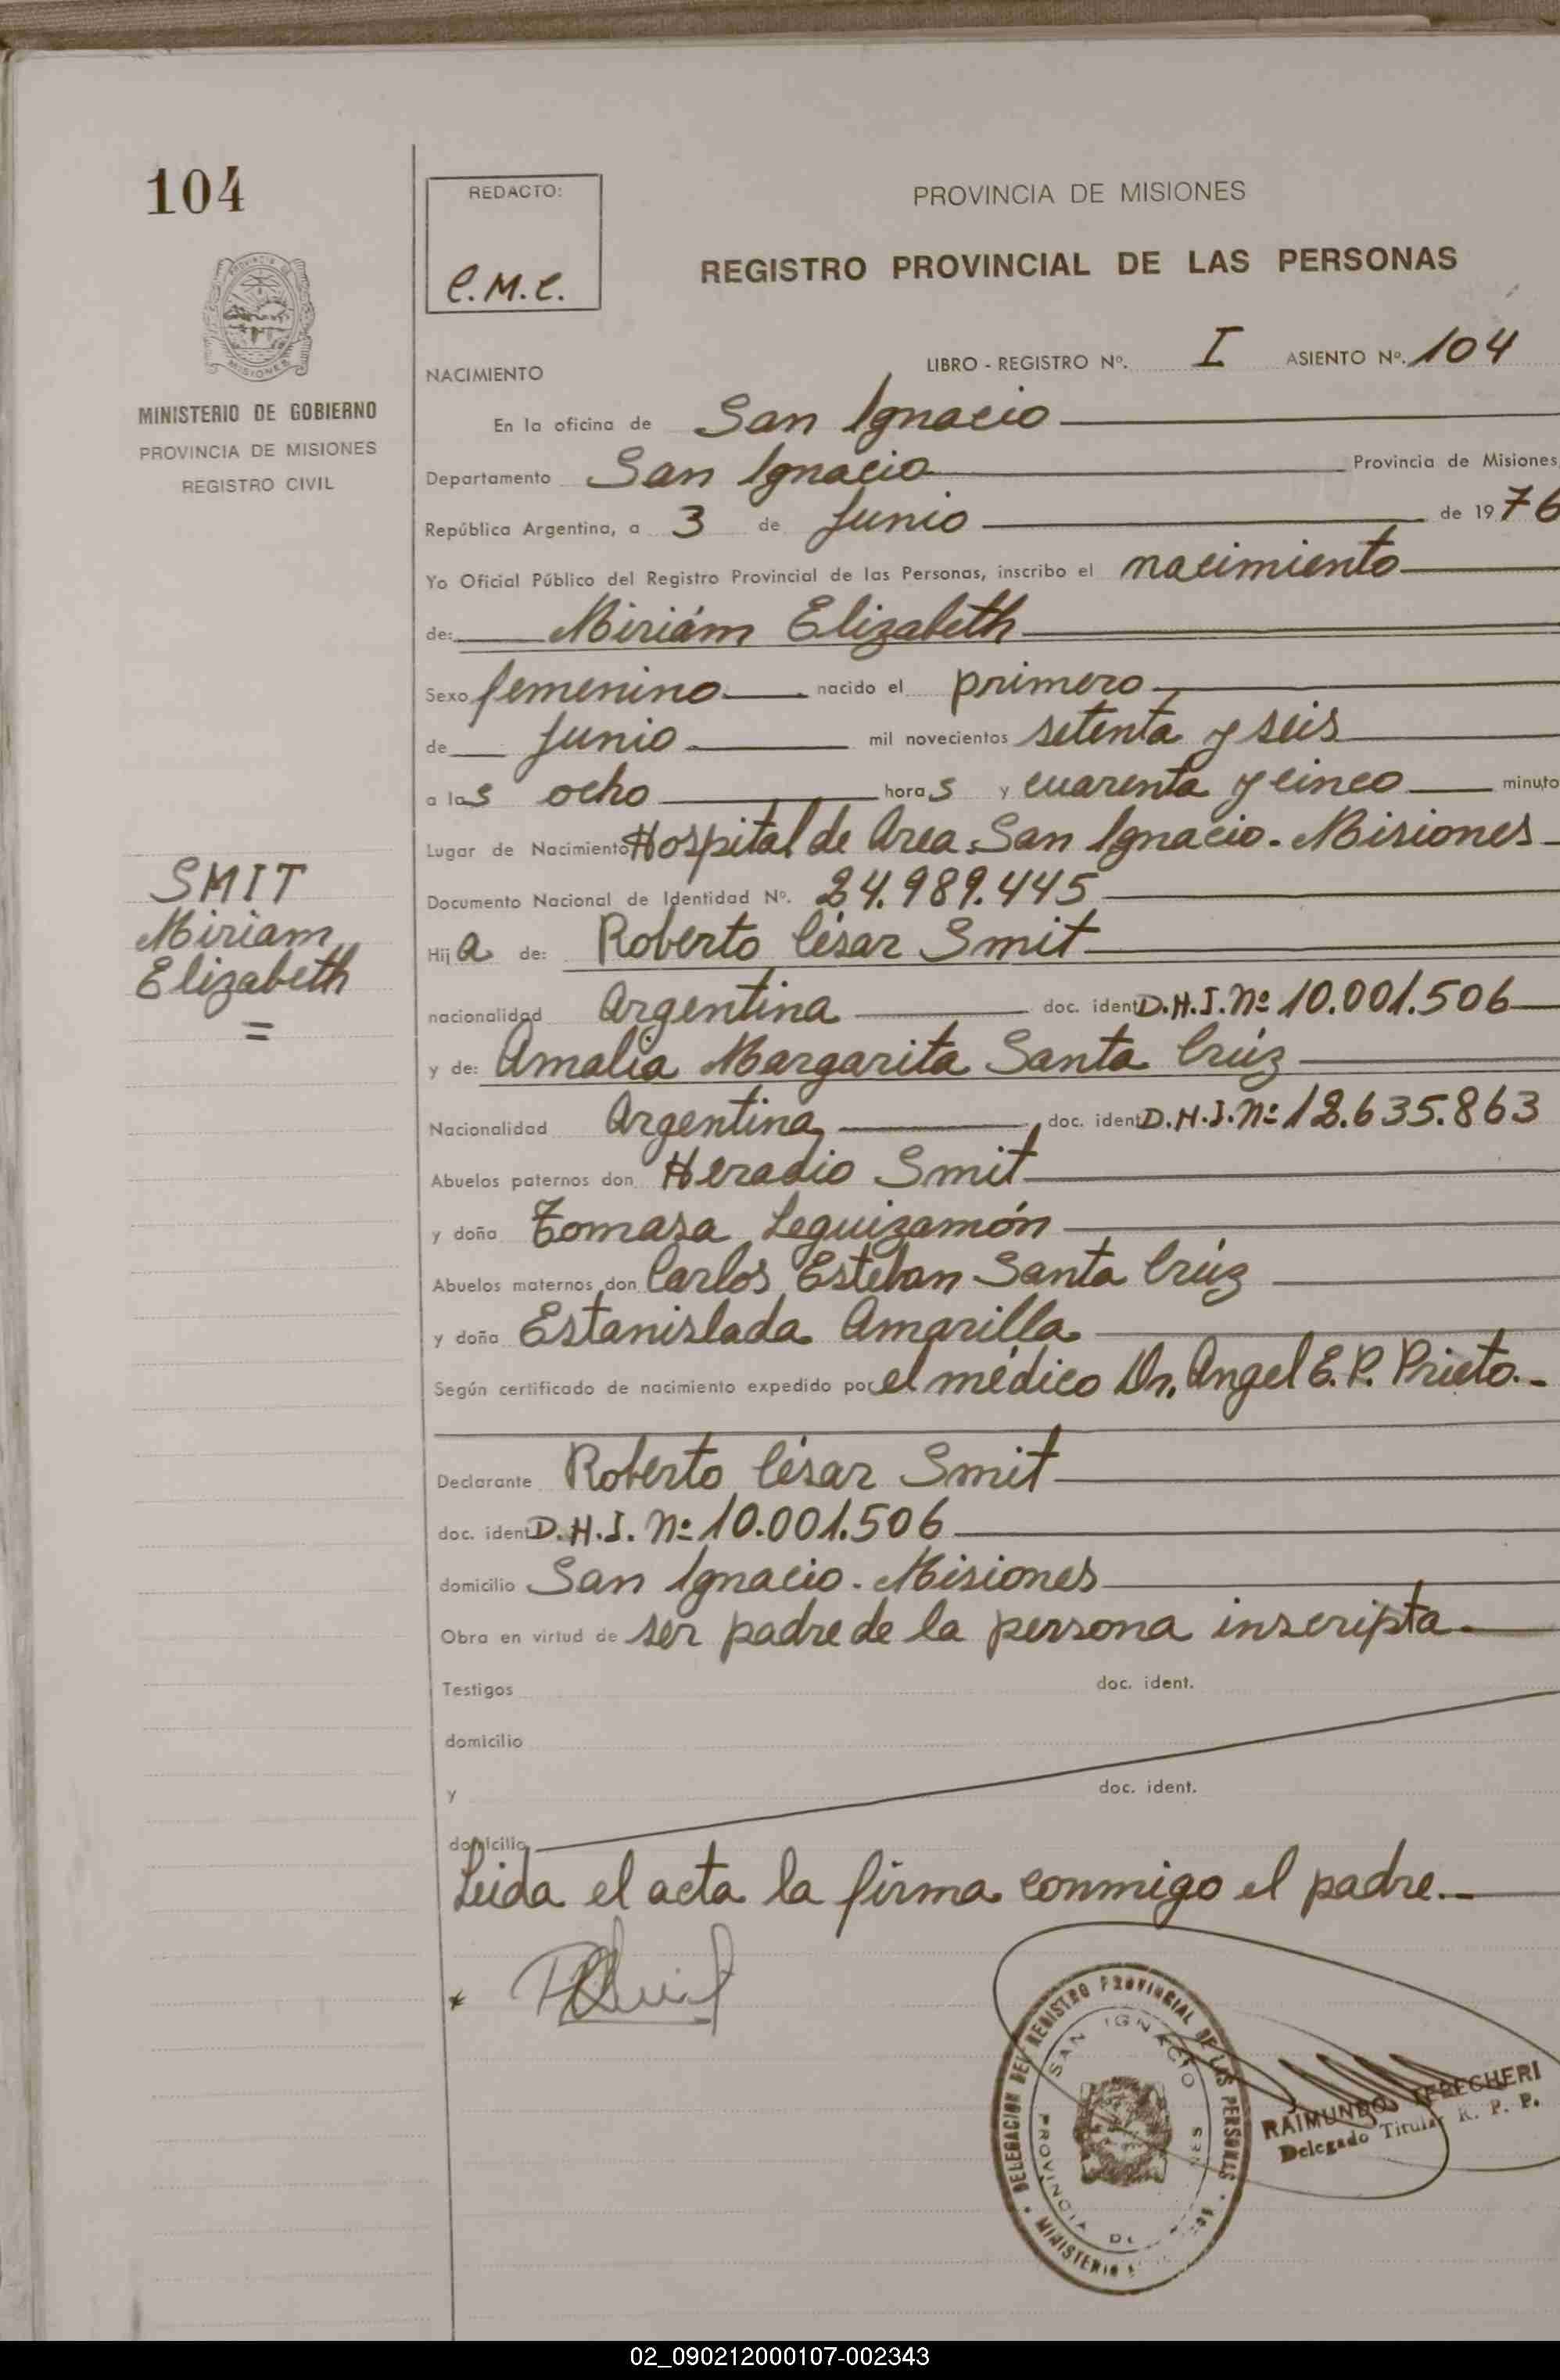 104
REDACTO:
C.M.C.
PROVINCIA DE MISIONES
REGISTRO PROVINCIAL DE LAS PERSONAS
MISIONES
MINISTERIO DE GOBIERNO
PROVINCIA DE MISIONES
REGISTRO CIVIL
LIBRO - REGISTRO Nº. I ASIENTO Nº. 104
NACIMIENTO
En la oficina de San Ignacio
Departamento San Ignacio Provincia de Misiones,
República Argentina, a 3 de Junio de 1976
Yo Oficial Público del Registro Provincial de las Personas, inscribo el nacimiento
de: Miriám Elizabeth
Sexo femenino nacido el primero
de Junio mil novecientos setenta y seis
a las ocho horas y cuarenta y cinco minuto
Lugar de Nacimiento Hospital de Area San Ignacio. Misiones
Documento Nacional de Identidad Nº. 24.989.445
SMIT
Miriam
Elizabeth
=
Hija de: Roberto César Smit
nacionalidad Argentina doc. ident D.N.I. Nº 10.001.506
y de: Amalia Margarita Santa Crúz
Nacionalidad Argentina doc. ident D.N.I. Nº 12.635.863
Abuelos paternos don Heradio Smit
y doña Tomasa Leguizamón
Abuelos maternos don Carlos Esteban Santa Crúz
y doña Estanislada Amarilla
Según certificado de nacimiento expedido por el médico Dr. Angel E. P. Prieto.-
Declarante Roberto César Smit
doc. ident D.N.I. Nº 10.001.506
domicilio San Ignacio. Misiones
Obra en virtud de ser padre de la persona inscripta.
Testigos doc. ident.
domicilio
y doc. ident.
domicilio
Leida el acta la firma conmigo el padre.-
DELEGACION DEL REGISTRO PROVINCIAL DE LAS PERSONAS
SAN IGNACIO
PROVINCIA DE
MINISTERIO
RAIMUNDO TERECHERI
Delegado Titular R. P. P.
02_090212000107-002343